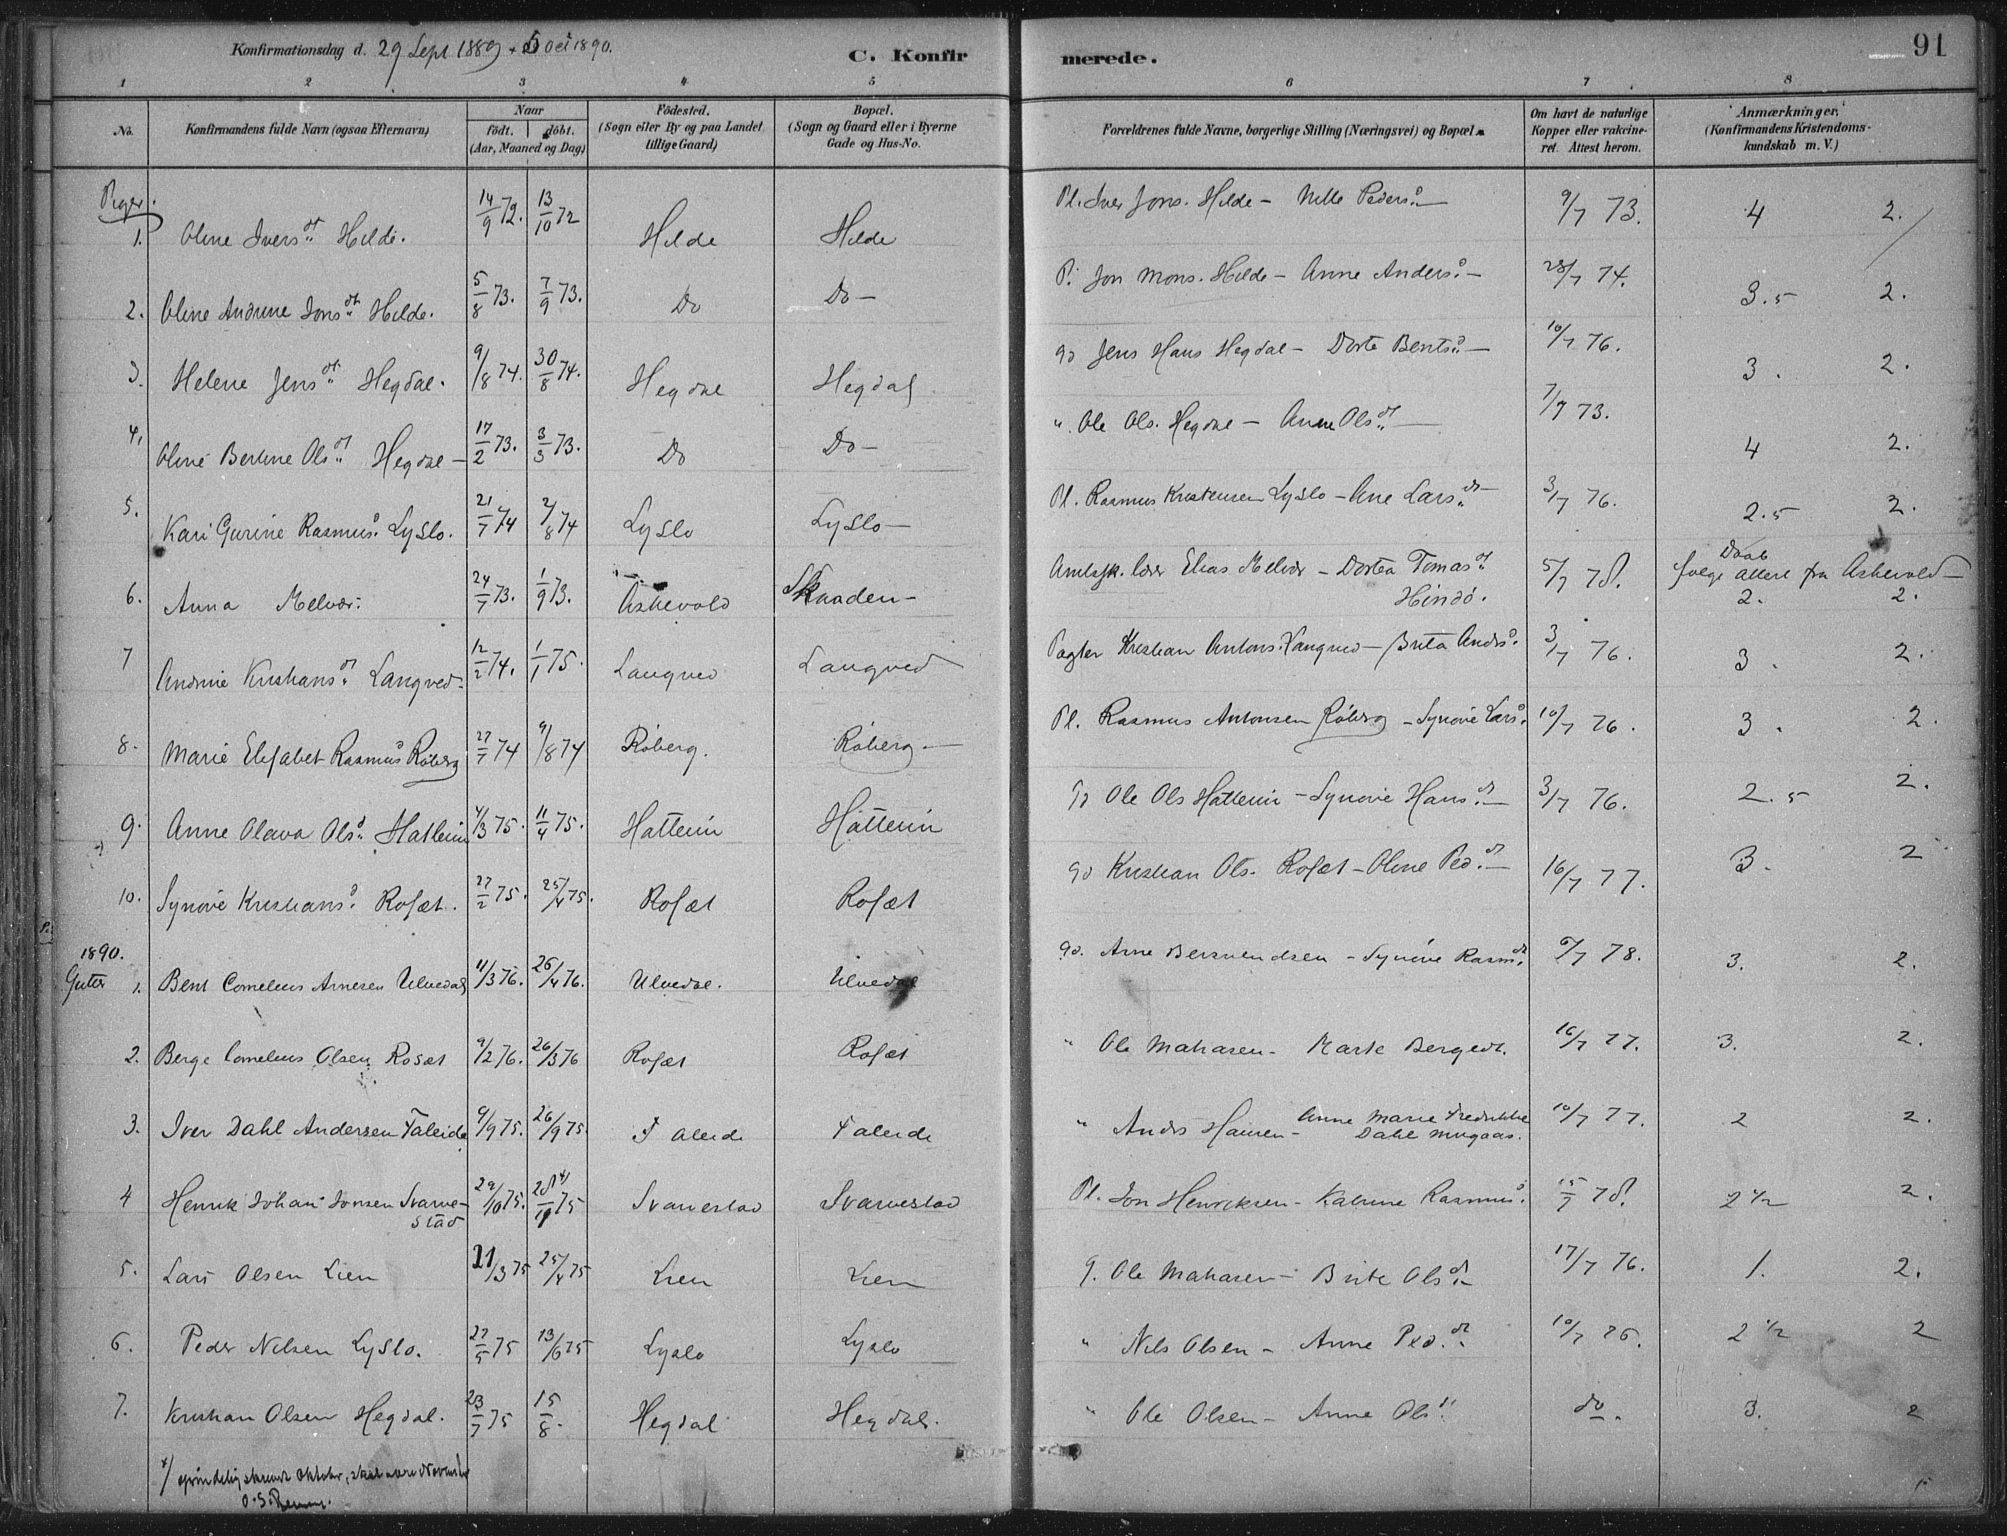 Konfirmationsdag d. 29 Sept 1889 + 5 Oct 1890. C. Konfirmerede. 91
1 2 3 4 5 6 7 8
No. Konfirmandens fulde Navn (ogsaa Efternavn) Naar født. døbt. (Aar, Maaned og Dag) Fødested. (Sogn eller By og paa Landet tillige Gaard) Bopæl. (Sogn og Gaard eller i Byerne Gade og Hus-No. Forældrenes fulde Navne, borgerlige Stilling (Næringsvei) og Bopæl. Om havt de naturlige Kopper eller vakcineret. Attest herom. Anmærkninger. (Konfirmandens Kristendomskundskab m. V.)
Piger.
1. Oline Ivers dt Hilde. 14/9 72. 13/10 72 Hilde Hilde Pl. Iver Jons. Hilde - Nille Peders d - 9/7 73. 4 2.
2. Oline Andrine Jons dt Hilde. 5/8 73. 7/9 73. Do Do - P. Jon Mons. Hilde - Anne Anders d - 28/7 74. 3.5 2.
3. Helene Jens dt Hegdal. 9/8 74. 30/8 74. Hegdal Hegdal Jens Hans Hegdal - Dorte Bents d - 10/7 76. 3. 2.
4. Oline Bertine Ols dt Hegdal - 17/2 73. 3/3 73. Do Do - " Ole Ols. Hegdal - Anne Ols dt - 7/7 73. 4 2.
5. Kari Gurine Rasmus d. Lyslo. 21/7 74 2/8 74 Lyslo Lyslo - Pl. Rasmus Kristensen Lyslo - Ane Lars dt - 3/7 76. 2.5 2.
6. Anna Melvær. 24/7 73. 1/9 73. Askevold Skaaden - Amtssk. lærer Elias Melvær - Dortea Tomas dt Hindø. 5/7 78. Daab følge attest fra Askevold - 2. 2.
7 Andrine Kristians d. Langved - 12/2 74. 1/1 75. Langved Langved Pagter Kristian Antons. Langved - Brita Anders d. 3/7 76. 3. 2.
8. Marie Elisabet Rasmus d Røberg 27/7 74 9/8 74 Røberg. Røberg - Pl. Rasmus Antonsen Røberg - Synøve Lars d. 10/7 76. 3. 2.
9. Anne Olava Ols d. Hatlenin 4/3 75. 11/4 75. Hattenin Hattenin Ole Ols Hattenin - Synøve Hans d. - 3/7 76. 2.5 2.
10. Synøve Kristians d. Rosæt. 27/2 75. 25/4 75. Rosæt Rosæt Kristian Ols. Rosæt - Oline Ped. d - 16/7 77. 3. 2
1890.
Guter 1. Bent Cornelius Arnesen Ulvedal 11/3 76. 26/4 76. Ulvedal. Ulvedal Arne Bersvendsen - Synøve Rasm dt. 6/7 78. 3. 2.
2. Berge Cornelius Olsen Rosæt 9/2 76. 26/3 76 Rosæt Rosæt " Ole Matiasen - Marte Bergedt. 16/7 77. 3. 2.
3. Iver Dahl Andersen Faleide 9/9 75. 26/9 75. Faleide Faleide " Anders Hansen - Anne Marie Fredrikke Dahl 10/7 77. 2 2.
4 Henrik Johan Jonsen Svarvestad 29/10 75. 28/11 75 Svarvestad Svarvestad Pl. Jon Henriksen - Katrine Rasmus d. 15/7 78. 2 1/2 2.
5. Lars Olsen Lien 21/3 75 25/4 75 Lien Lien G. Ole Matiasen - Brite Ols dt - 17/7 76. 1. 2.
6. Peder Nilsen Lyslo. 27/5 75 13/6 75 Lyslo Lyslo " Nils Olsen - Anne Ped. dt. 10/7 76. 2 1/2 2
7. Kristian Olsen Hegdal. 23/7 75 15/8. Hegdal Hegdal. " Ole Olsen - Anne Ols d. do. 3. 2
x/ oprindelig skrevet Oktober, skal være November
O.S.